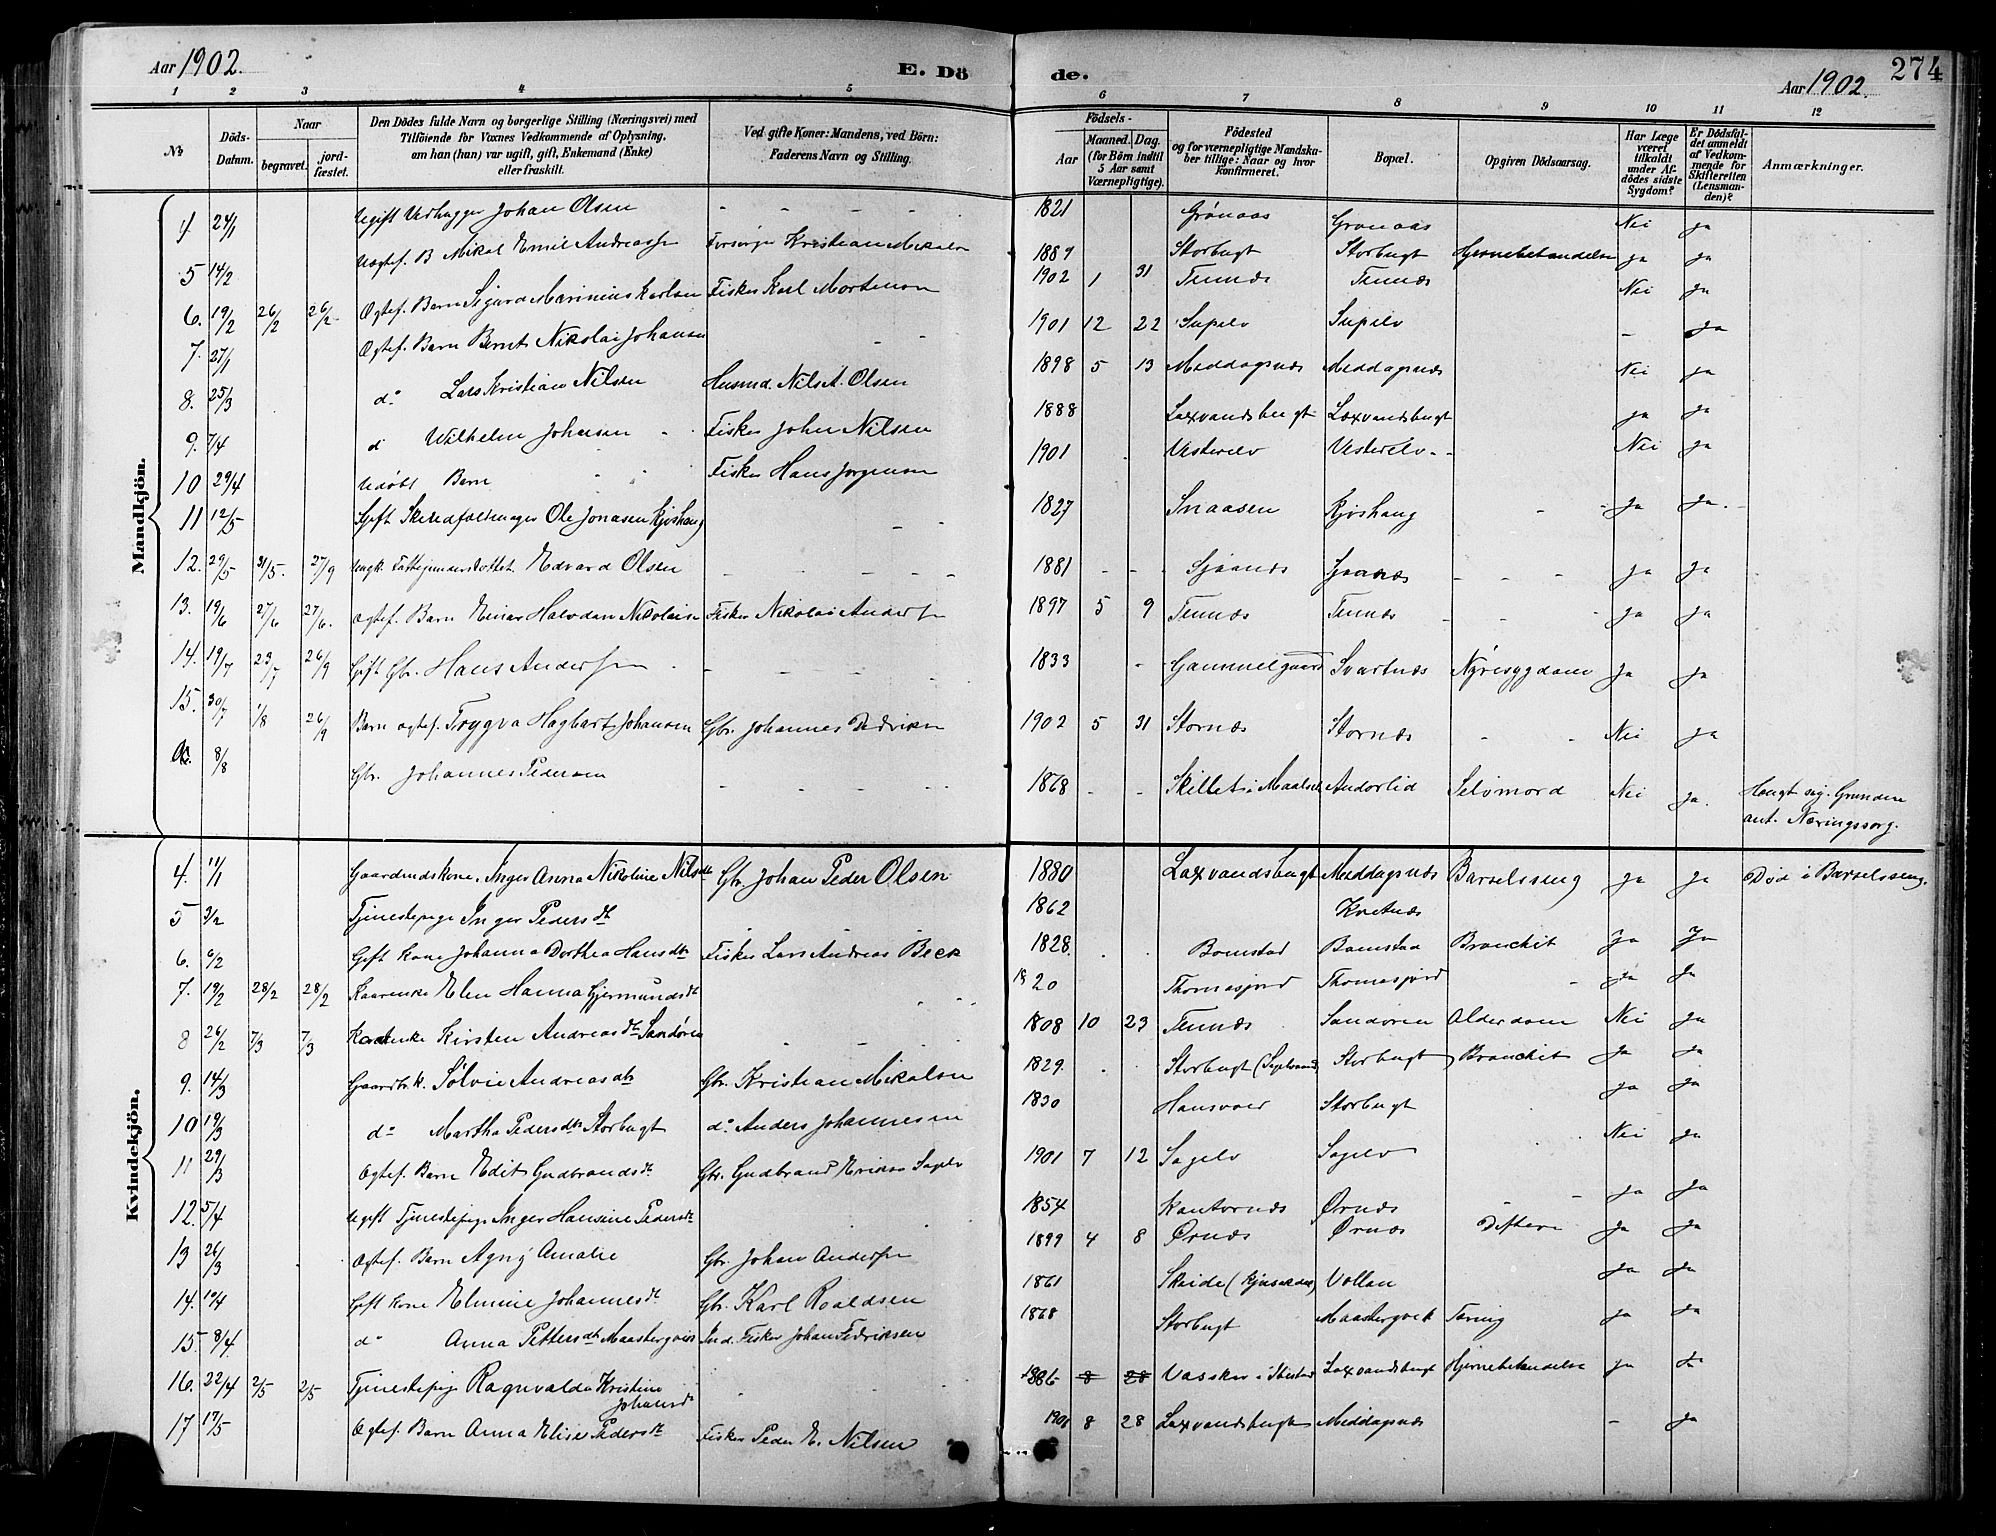 Aar 1902.
E. Dö
de.
Aar 1902.
274
1 2 3 4 5 6 7 8 9 10 11 12
№
Döds-Datum.
Naar
begravet.
jordfæstet.
Den Dödes fulde Navn og borgerlige Stilling (Næringsvei) med
Tilföiende for Voxnes Vedkommende af Oplysning.
om han (hun) var ugift, gift, Enkemand (Enke)
eller fraskilt.
Ved gifte Koner: Mandens, ved Börn:
Faderens Navn og Stilling.
Födsels-
Aar
Maaned. Dag.
(for Börn indtil
5 Aar samt
Værnepligtige).
Födested
og for værnepligtige Mandskaber tillige: Naar og hvor
konfirmeret.
Bopæl.
Opgiven Dödsaarsag.
Har Læge
været
tilkaldt
under Afdödes sidste
Sygdom?
Er Dödsfaldet anmeldt
af Vedkommende for
Skifteretten
(Lensmanden)?
Anmærkninger.
Mandkjön.
4 24/1 Ugift Vedhugger Johan Olsen - - - - 1821 Grönaas Grønaas Nei ja
5 14/2 Uægtef. B Mikal Emil Andreassen Forsörger Kristian Mikalsn 1889 Storbugt Storbugt Hjernebetændelse ja ja
6. 19/2 26/2 26/2 Ægtef. Barn Sigurd Marinius Karlsen Fisker Karl Mortenson 1902 1 31 Tennæs Tennæs Nei ja
7. 27/1 Ægtef. Barn Bernt Nikolai Johansen - - 1901 12 22 Supelv Supelv - ja
8. 25/3 do Lars Kristian Nilsen Husmd. Nils A. Olsen 1898 5 13 Meddagsnæs Meddagsnæs Nei ja
9. 7/4 d Wilhelm Johnsen Fisker John Nilsen 1888 Laxvandsbugt Laxvandsbugt ja ja
10 29/4 Udöbt Barn Fisker Hans Jørgenson 1901 Vesterelv Vesterelv Nei ja
11 12/5 Gift Ole Jonasen Kjøshaug - - 1827 Snaasen Kjøshaug - - ja ja.
12. 29/5 31/5. 27/9 Edvard Olsen - - - - 1881 - - Sjaanæs Sjaanæs - - - ja ja
13. 19/6 27/6 27/6. Ægtef. Barn Einar Halvdan Nikolaisn Fisker Nikolai Andersn 1897 5 9 Tennæs Tennæs - - ja ja
14. 19/7 23/7 26/9 Gift Gbr. Hans Andersen - - - 1833 - Gammelgaard Svartnæs Nyresygdom ja ja
15. 30/7 1/8 26/9 Barn ægtef. Trygva Hagbart Johansen Gbr. Johannes Dedriksn 1902 5 31 Stornæs Stornæs - - Nei ja
8/8 Gbr. Johannes Pedersen - - - - 1868 - - Skillet i Maalselv Andorlid Selvmord Nei ja. Hængt sig. Grunden
ant. Næringssorg.
Kvindekjön.
4. 11/1 Gaardmdskone, Inger Anna Nikoline Nilsdtr Gbr. Johan Peder Olsen 1880 Laxvandsbugt Meddagsnæs Barselsseng ja ja Död i Barselsseng.
5 3/2 Tjenestepige Inger Pedersdt 1862 Kvitnæs
6. 6/2 Gift Kone Johanna Dorthea Hansdtr Fisker Lars Andreas Beck 1828. . . Bomstad Bomstad Bronchit Ja Ja
7. 19/2 28/2 28/2 Kaarenke Elen Hanna Gjermundsdt 1820 Thomasjord Thomasjord - ja ja
8 26/2 7/3 7/3 Kaarenke Kirsten Andreasdtr Sandøren 1808 10 23 Tennæs Sandøren Alderdom Nei ja
9. 14/3 Gaardbr.k. Sølvie Andreasdtr Gbr. Kristian Mikalsen 1829. Storbugt (Sagelvvand) Storbugt Bronchit ja ja
10 19/3 do Martha Pedersdtr Storbugt do Anders Johannesen 1830 Hansvold Storbugt ja ja
11 29/3 Ægtef. Barn Edit Gudbrandsdt Gbr. Gudbrand Eriksn Sagelv 1901 7 12 Sagelv Sagelv Nei ja
12. 5/4 Ugift Tjenestepige Inger Hansine Pedersdt 1854 Kantornæs Ørnæs - - ja ja
13 26/3 Ægtef. Barn Agny Amalie Gbr. Johan Andersn 1899 4 8 Ørnæs Ørnæs Difteri ja ja
14. 10/4 Gift Kone Elmine Johannesdt Gbr. Karl Roaldsen 1861 Skeide Vollan ja ja
15 8/4. do Anna Pettersdtr Maastervik Ind. Fisker Johan Fedriksen 1868 Storbugt Maastervik Tæring ja ja
16. 22/4 2/5 2/5 Tjenestepige Ragnvalda Kristine
Johansdt 1886 8 28 i Ibestad Laxvandsbugt Hjernebetændelse ja ja
17 17/5 Ægtef. Barn Anna Elise Pedersdt Fisker Peder E. Nilsen 1901 8 28 Laxvandsbugt Meddagsnæs - ja